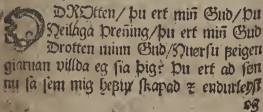 DROtten/ þu ert miñ Gud/ Þu
Heilaga Þreñing/ þu ert miñ Gud
Drotten minn Gud/ Huersu feigen
giarnan villda eg sia þig? Þu ert ad søn
nu sa sem mig hefur skapad ⁊ endurleyst
eg